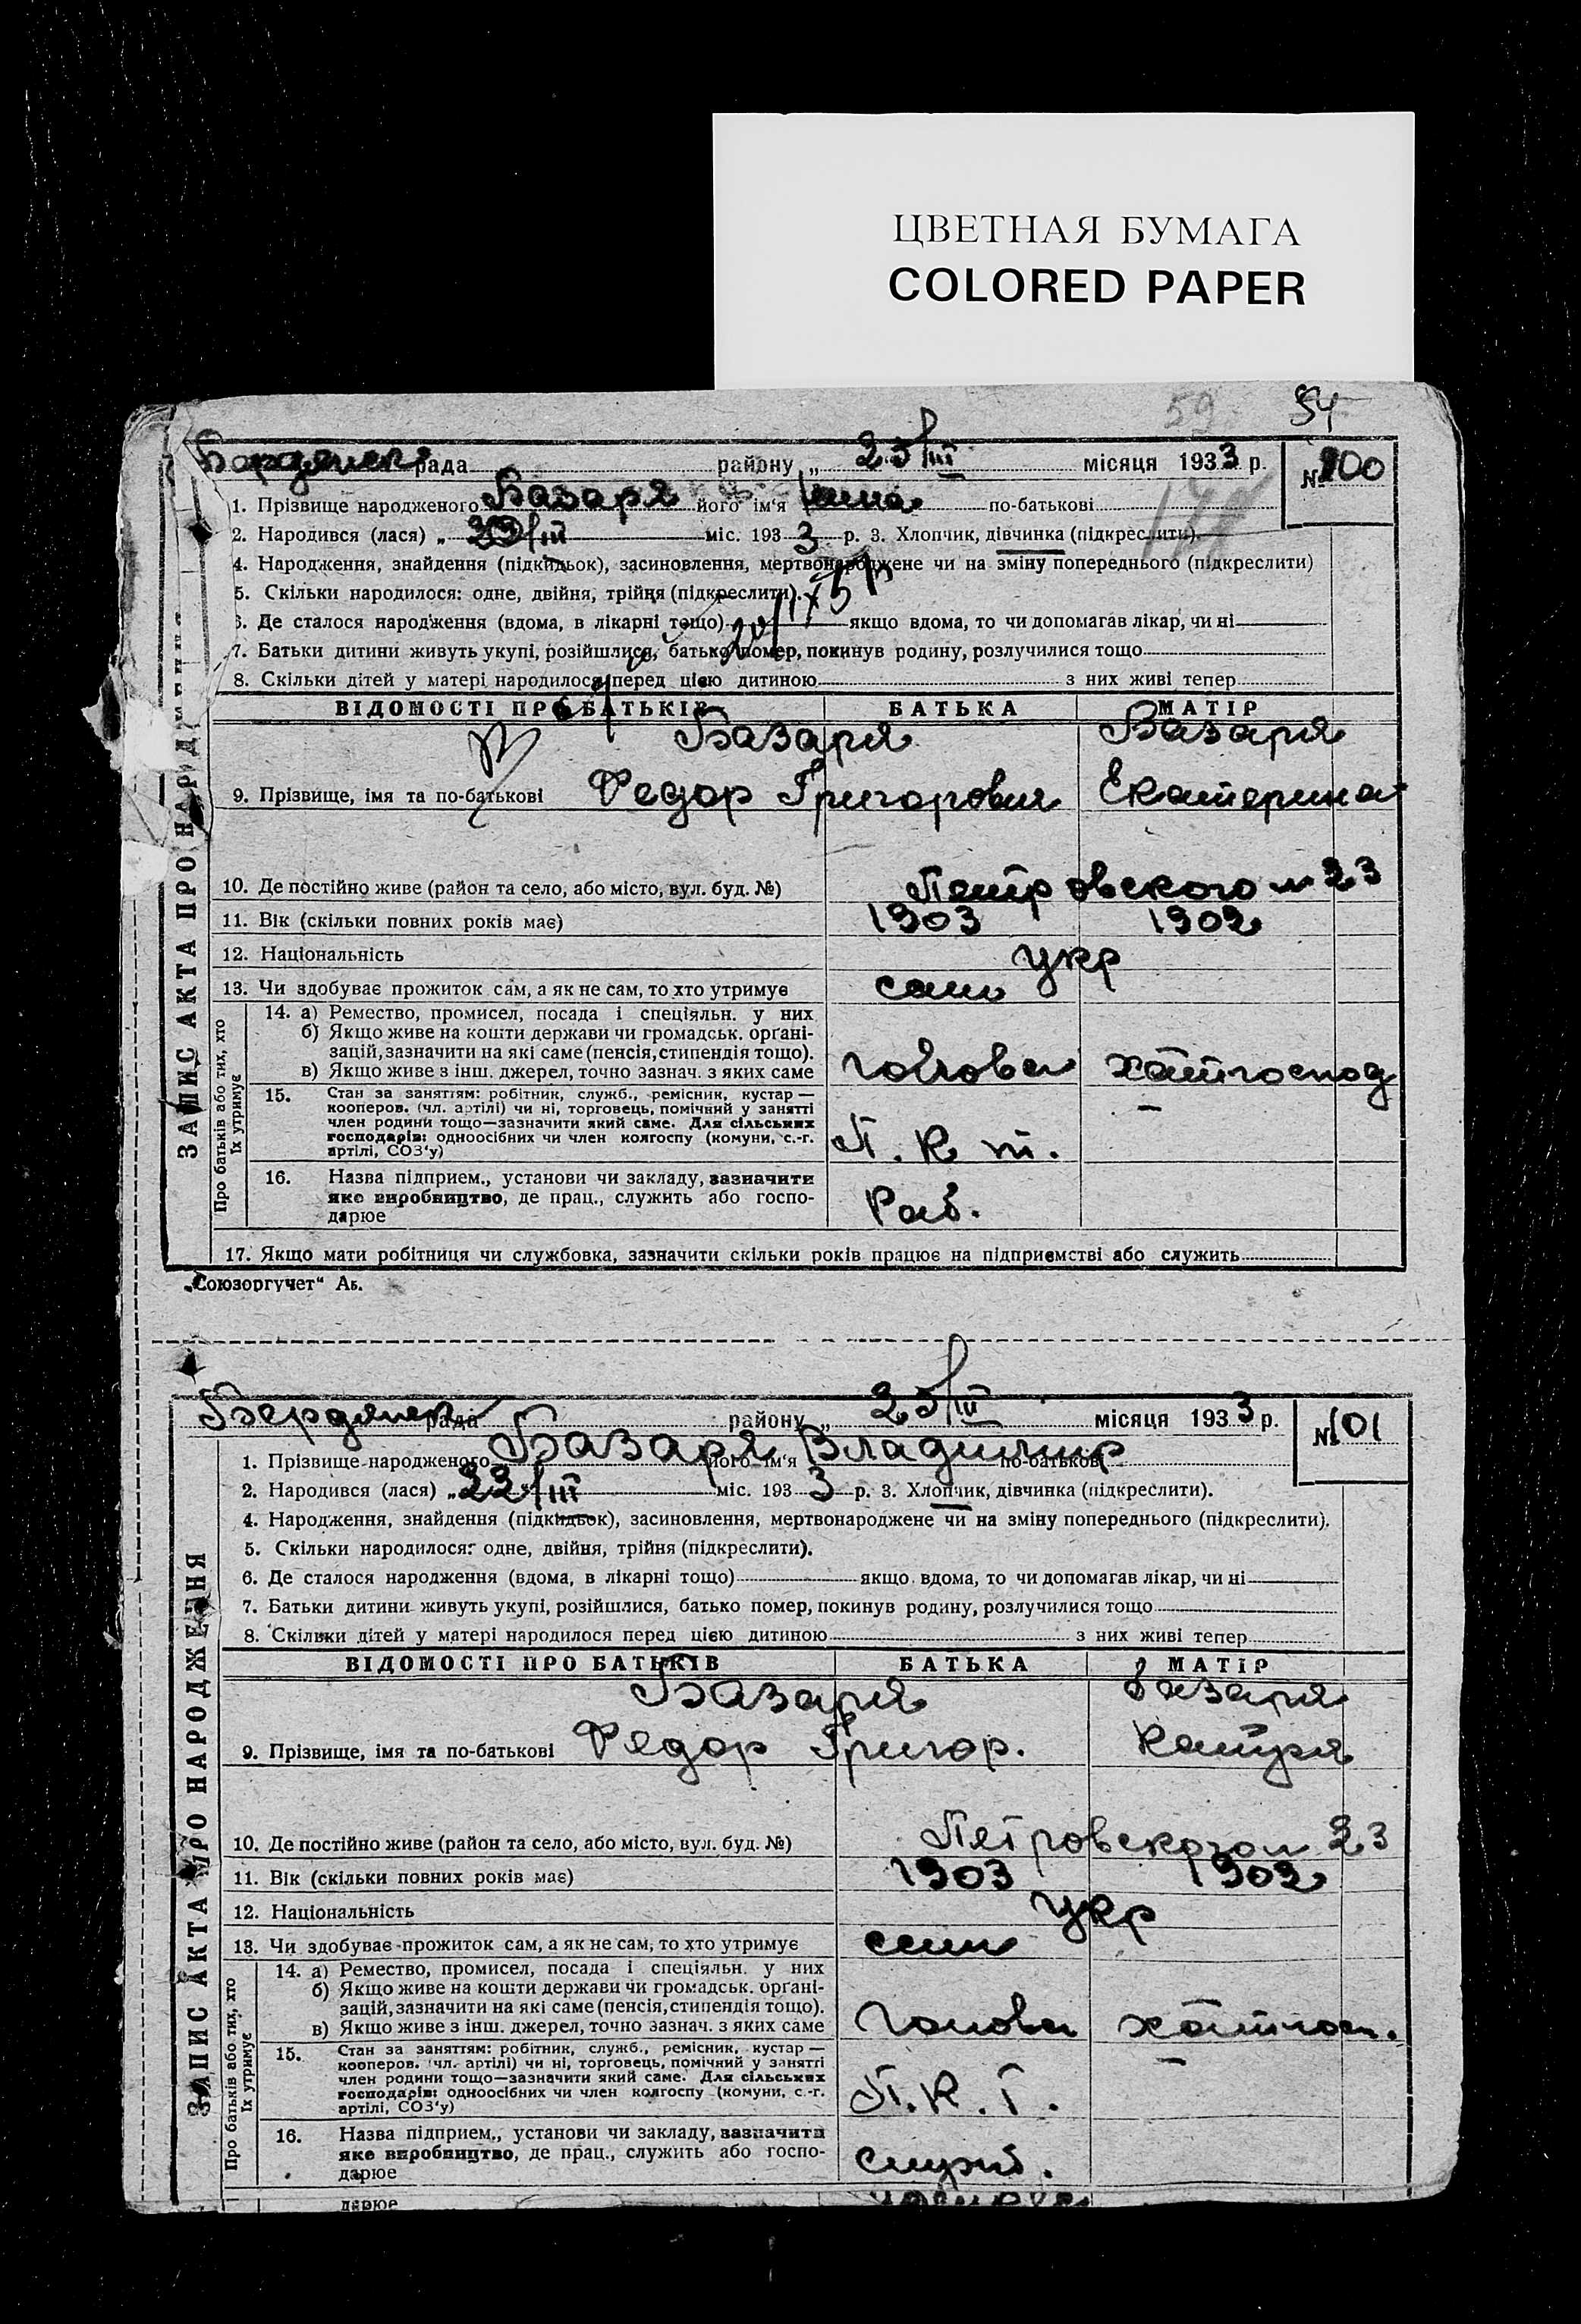 ЦВЕТНАЯ БУМАГА
COLORED PAPER
59 54
Бердянськ рада района „ 25/III місяця 1933 р. № 100
1. Прізвище народженого Базаря його ім‘я по-батькові
2. Народився (лася) „ /III міс. 1933 р. 3. Хлопчик, дівчинка (підкреслити).
4. Народження, знайдення (підкидьок), засиновлення, мертвонароджене чи на зміну попереднього (підкреслити)
5. Скільки народилося: одне, двійня, трійня (підкреслити).
6. Де сталося народження (вдома, в лікарні тощо) якщо вдома, то чи допомагав лікар, чи ні
7. Батьки дитини живуть укупі, розійшлися, батько помер, покинув родину, розлучилися тощо
8. Скільки дітей у матері народилося перед цією дитиною з них живі тепер
ЗАПИС АКТА ПРО НАРОДЖЕННЯ
ВІДОМОСТІ ПРО БАТЬКІВ БАТЬКА МАТІР
Базаря Базаря
9. Прізвище, імя та по-батькові Федор Григорович Екатерина
10. Де постійно живе (район та село, або місто, вул. буд. №) Петровского 23
11. Вік (скільки повних років має) 1903 1902
12. Національність укр
13. Чи здобуває прожиток сам, а як не сам, то хто утримує сам
Про батьків або тих, хто їх утримує
14. а) Ремество, промисел, посада і спеціяльн. у них
б) Якщо живе на кошти держави чи громадськ. орґані-
зацій, зазначити на які саме (пенсія, стипендія тощо).
в) Якщо живе з інш. джерел, точно зазнач. з яких саме голова хатгоспод
15. Стан за заняттям: робітник, служб., ремісник, кустар —
кооперов. (чл. артілі) чи ні, торговець, помічний у занятті
член родини тощо—зазначити який саме. Для сільських
господарів: одноосібних чи член колгоспу (комуни, с.-г.
артілі, СОЗ‘у) П. К. т. —
16. Назва підприєм., установи чи закладу, зазначити
яке виробництво, де прац., служить або госпо-
дарює Раб.
17. Якщо мати робітниця чи службовка, зазначити скільки років працює на підприємстві або служить
„Союзоргучет“ Аб.
Бердянск рада району „ 25/III місяця 1933 р. № 101
1. Прізвище народженого Базаря його ім‘я Владимир по-батькові
2. Народився (лася) „ 22/III міс. 1933 р. 3. Хлопчик, дівчинка (підкреслити).
4. Народження, знайдення (підкидьок), засиновлення, мертвонароджене чи на зміну попереднього (підкреслити).
5. Скільки народилося: одне, двійня, трійня (підкреслити).
6. Де сталося народження (вдома, в лікарні тощо) якщо вдома, то чи допомагав лікар, чи ні
7. Батьки дитини живуть укупі, розійшлися, батько помер, покинув родину, розлучилися тощо
8. Скільки дітей у матері народилося перед цією дитиною з них живі тепер
ЗАПИС АКТА ПРО НАРОДЖЕННЯ
ВІДОМОСТІ ПРО БАТЬКІВ БАТЬКА МАТІР
Базаря Базаря
9. Прізвище, імя та по-батькові Федор Григор. Катря
10. Де постійно живе (район та село, або місто, вул. буд. №) Петровского 23
11. Вік (скільки повних років має) 1903 1902
12. Національність укр
13. Чи здобуває прожиток сам, а як не сам, то хто утримує сам
Про батьків або тих, хто їх утримує
14. а) Ремество, промисел, посада і спеціяльн. у них
б) Якщо живе на кошти держави чи громадськ. орґані-
зацій, зазначити на які саме (пенсія, стипендія тощо).
в) Якщо живе з інш. джерел, точно зазнач. з яких саме голова хатгосп.
15. Стан за заняттям: робітник, служб., ремісник, кустар —
кооперов. (чл. артілі) чи ні, торговець, помічний у занятті
член родини тощо—зазначити який саме. Для сільських
господарів: одноосібних чи член колгоспу (комуни, с.-г.
артілі, СОЗ‘у) П. К. Т. —
16. Назва підприєм., установи чи закладу, зазначити
яке виробництво, де прац., служить або госпо-
дарює Служб.
дарює